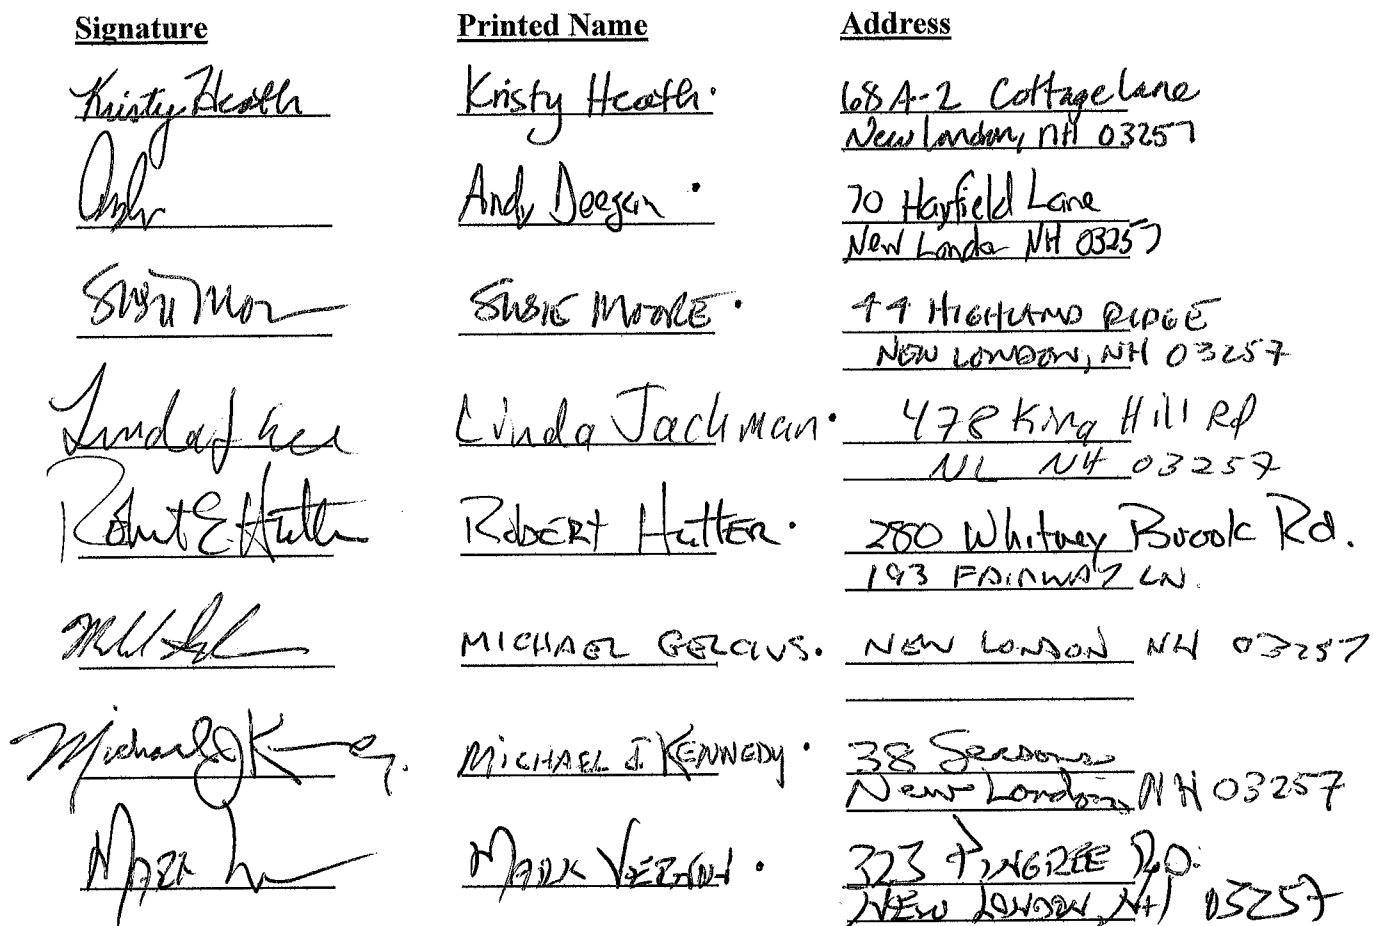 Signature Printed Name Address
Kristy Heath Kristy Heath. 68 A-2 Cottage Lane
New London, NH 03257
Andy Deegan . 70 Hayfield Lane
New London NH 03257
Susie Moore SUSIE MOORE . 44 HIGHLAND RIDGE
NEW LONDON, NH 03257
Linda Jackman . 478 King Hill Rd
NL NH 03257
Robert E. Hutter ROBERT HUTTER . 280 Whitney Brook Rd.
193 FAIRWAY LN.
MICHAEL GELCIUS. NEW LONDON NH 03257
Michael J MICHAEL J. KENNEDY . 38 Seasons
New London NH 03257
Mark MARK . 323 PINGREE RD.
NEW LONDON, NH 03257